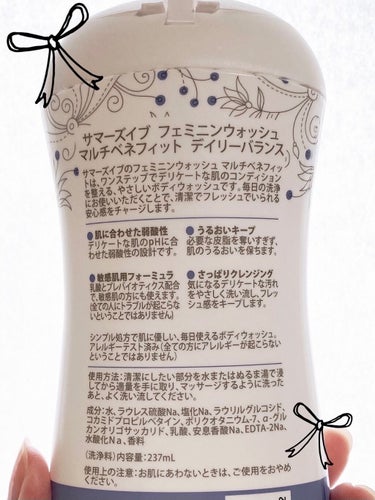 サマーズイブ フェミニンウォッシュ
マルチベネフィット デイリーバランス
サマーズイブのフェミニンウォッシュ マルチベネフィッ
トは、ワンステップでデリケートな肌のコンディション
を整える、やさしいボディウォッシュです。毎日の洗浄
にお使いいただくことで、清潔でフレッシュでいられる
安心感をチャージします。
●肌に合わせた弱酸性
デリケートな肌のpHに合
わせた弱酸性の設計です。
●うるおいキープ
必要な皮脂を奪いすぎず、
肌のうるおいを保ちます。
●敏感肌用フォーミュラ
乳酸とプレバイオティクス配合
で、敏感肌の方にも使えます。
(全ての人にトラブルが起こらな
いということではありません)
●さっぱりクレンジング
気になるデリケートな汚れ
をやさしく洗い流し、フレッ
シュ感をキープします。
シンプル処方で肌に優しい、毎日使えるボディウォッシュ。
アレルギーテスト済み(全ての方にアレルギーが起こらない
ということではありません)
使用方法:清潔にしたい部分を水またはぬるま湯で浸
してから適量を手に取り、マッサージするように洗った
あと、よく洗い流してください。
成分:水、ラウレス硫酸Na、塩化Na、ラウリルグルコシド、
コカミドプロピルベタイン、ポリクオタニウム-7、α-グル
カンオリゴサッカリド、乳酸、安息香酸Na、EDTA-2Na、
水酸化Na、香料
(洗浄料) 内容量:237mL
使用上の注意:お肌にあわないときは、ご使用をおやめ
ください。